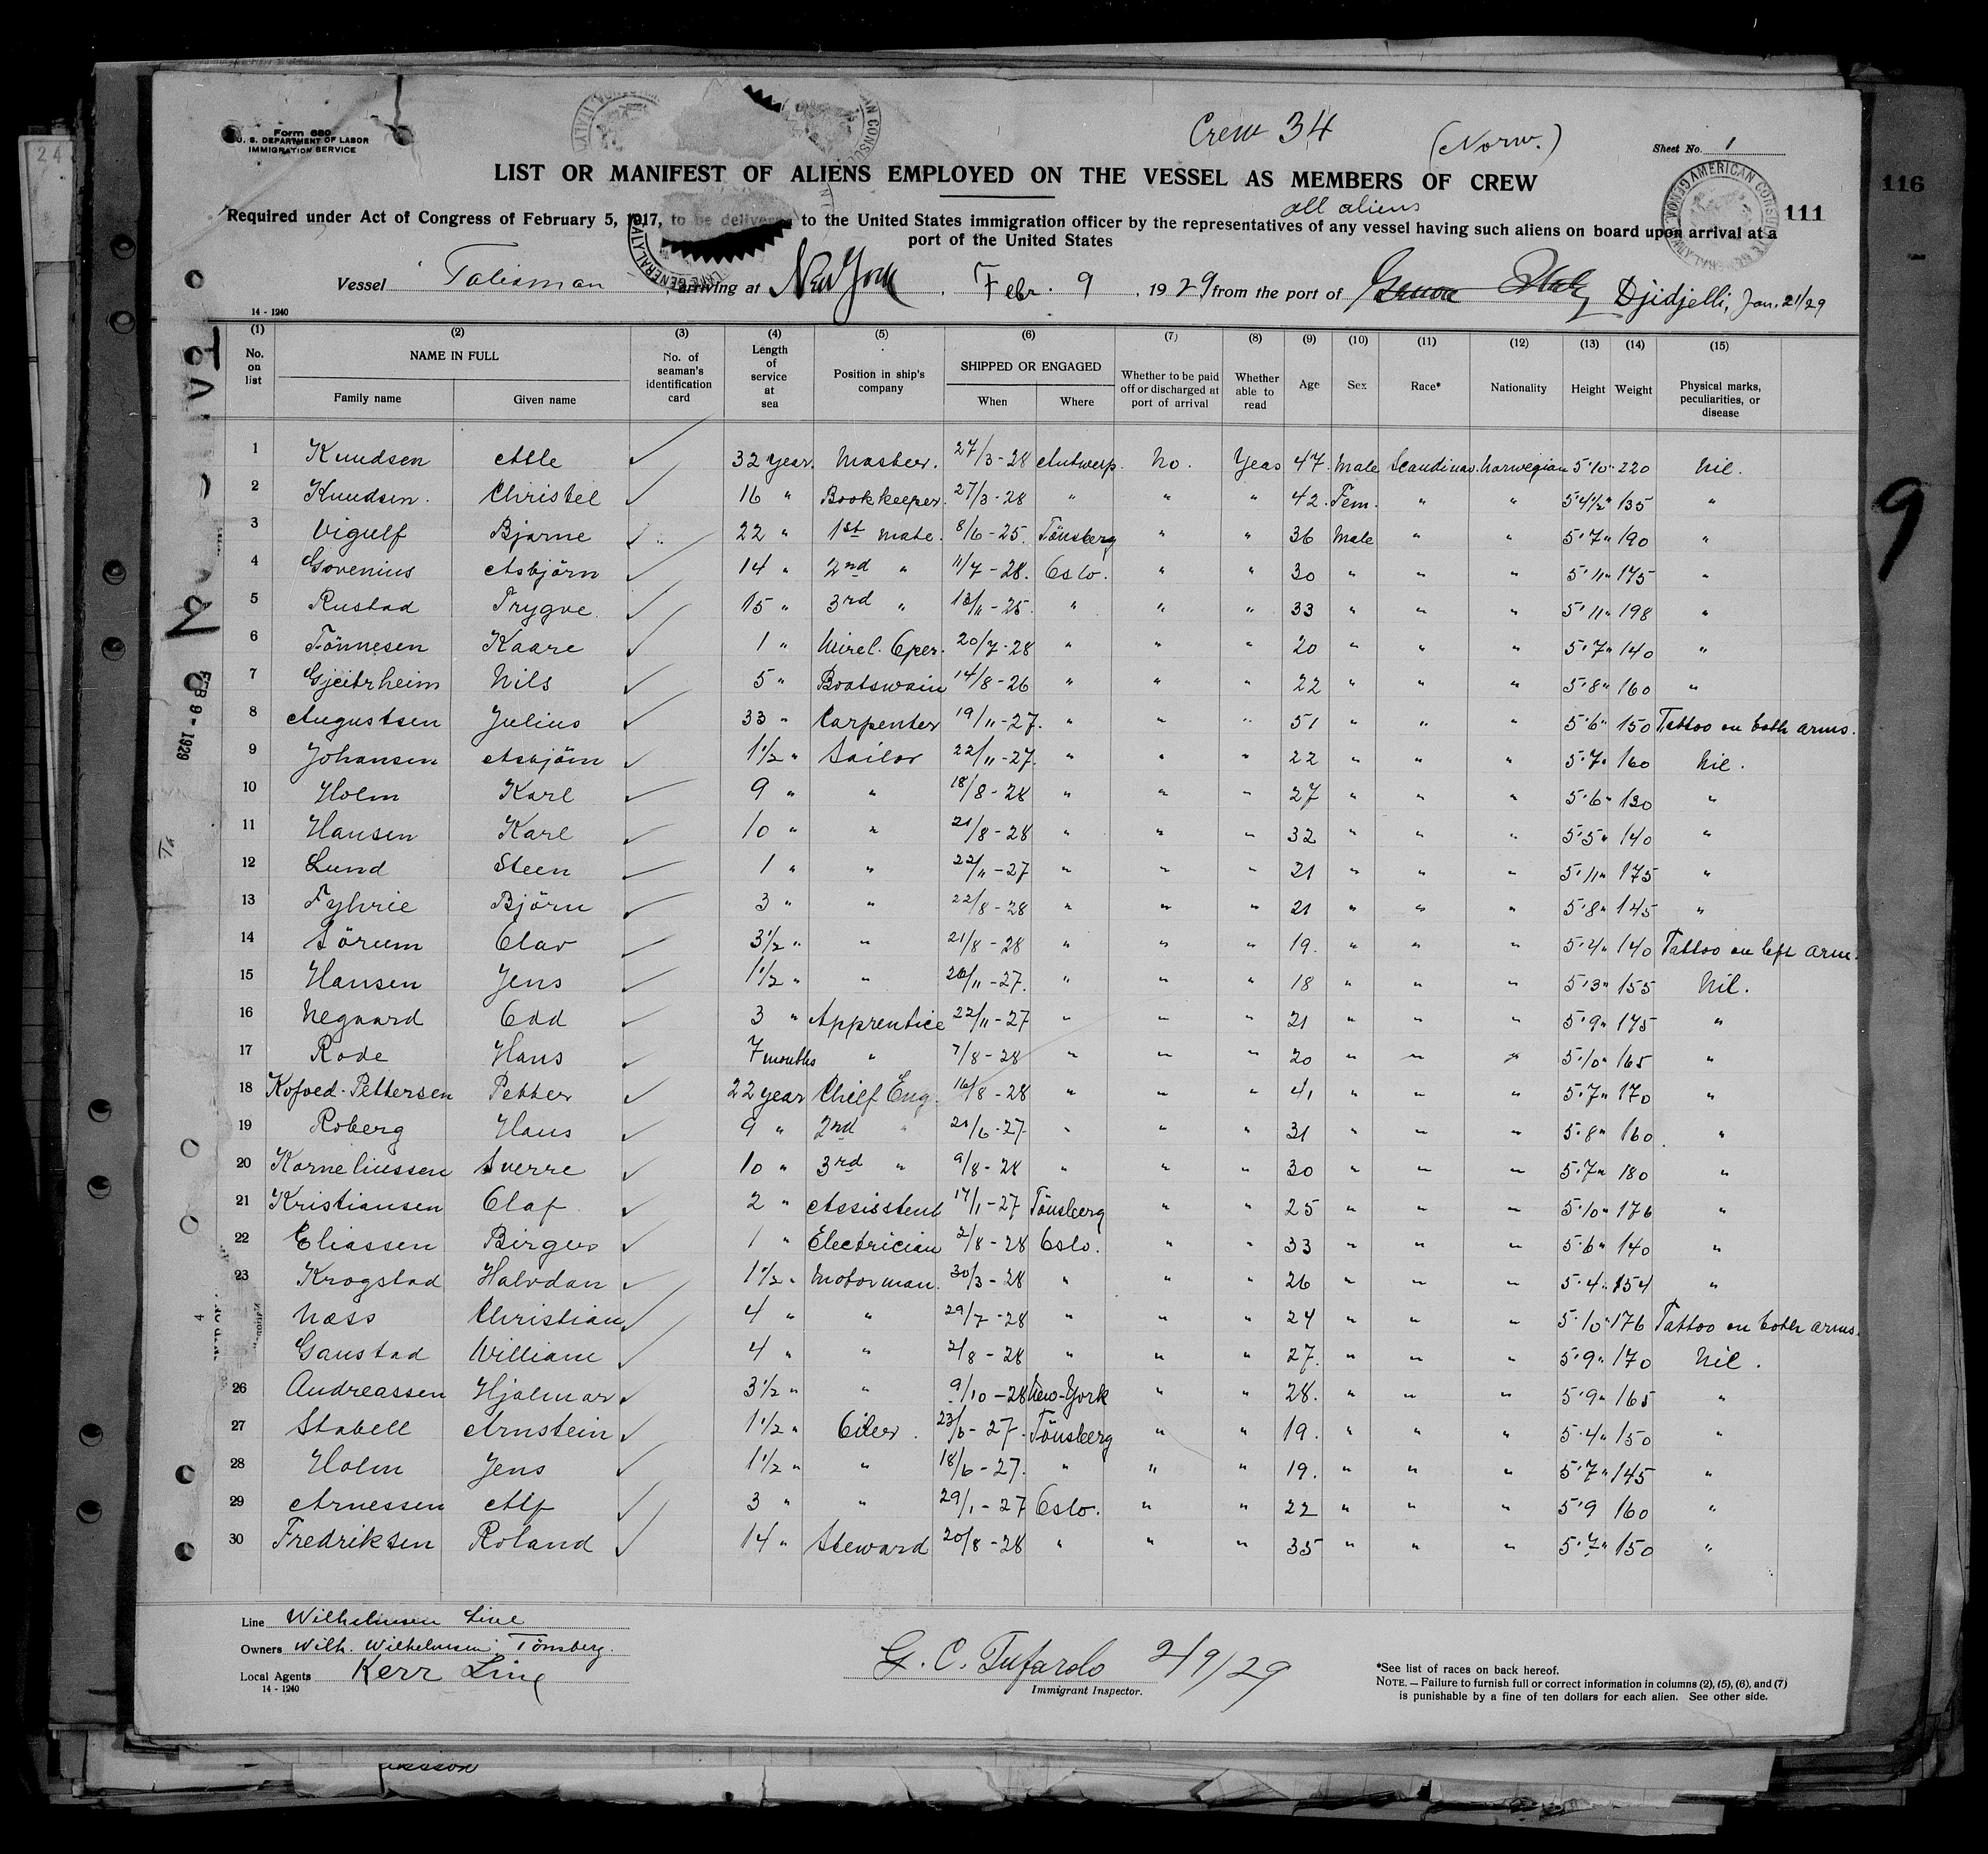 Crew 34
(Norw.)
Form 680
U. S. DEPARTMENT OF LABOR
IMMIGRATION SERVICE
Sheet No. 1
LIST OR MANIFEST OF ALIENS EMPLOYED ON THE VESSEL AS MEMBERS OF CREW
116
all aliens
111
Required under Act of Congress of February 5, 1917, to be delivered to the United States immigration officer by the representatives of any vessel having such aliens on board upon arrival at a
port of the United States
Vessel Talisman, arriving at New York, Febr. 9, 1929 from the port of Genoa Italy Djidjelli, Jan. 21/29
14-1240
(1) (2) (3) (4) (5) (6) (7) (8) (9) (10) (11) (12) (13) (14) (15)
No. on list NAME IN FULL Family name Given name No. of seaman's identification card Length of service at sea Position in ship's company SHIPPED OR ENGAGED When Where Whether to be paid off or discharged at port of arrival Whether able to read Age Sex Race* Nationality Height Weight Physical marks, peculiarities, or disease
1 Knudsen Atle ✓ 32 year. Master. 27/3-28 Antwerp. No. Yeas 47. Male Scandinav. Norwegian 5'10" 220 Nil.
2 Knudsen. Christel ✓ 16 " Bookkeeper. 27/3-28 " " " 42. Fem. " " 5'4½" 135 "
3 Vigulf Bjarne ✓ 22 " 1st mate. 8/6-25. Tönsberg " " 36 Male " " 5'7" 190 "
4 Govenius Asbjörn ✓ 14 " 2nd " 11/7-28. Oslo. " " 30 " " " 5'11" 175 "
5 Rustad Trygve. ✓ 15 " 3rd " 13/11-25. " " " 33 " " " 5'11" 198 "
6 Tönnesen Kaare ✓ 1 " Wirel. Oper. 20/7-28 " " " 20 " " " 5'7" 140 "
7 Gjeitrheim Nils ✓ 5 " Boatswain 14/8-26 " " " 22 " " " 5'8" 160 "
8 Augustsen Julius ✓ 33 " Carpenter 19/11-27. " " " 51 " " " 5'6" 150 Tattoo on both arms.
9 Johansen Asbjörn ✓ 1½ " Sailor 22/11-27. " " " 22 " " " 5'7" 160 Nil.
10 Holm Karl ✓ 9 " " 18/8-28 " " " 27 " " " 5'6" 130 "
11 Hansen Karl ✓ 10 " " 21/8-28 " " " 32 " " " 5'5" 140 "
12 Lund Steen ✓ 1 " " 22/11-27 " " " 21 " " " 5'11" 175 "
13 Fyhrie Björn ✓ 3 " " 22/8-28 " " " 21 " " " 5'8" 145 "
14 Sörum Olav ✓ 3½ " " 21/8-28 " " " 19. " " " 5'4" 140 Tattoo on left arm.
15 Hansen Jens ✓ 1½ " " 26/11-27. " " " 18 " " " 5'3" 155 Nil.
16 Negaard Odd ✓ 3 " Apprentice 22/11-27 " " " 21 " " " 5'9" 175 "
17 Rode Hans ✓ 7 months " 7/8-28 " " " 20 " " " 5'10" 165 "
18 Kofoed-Pettersen Petter ✓ 22 year Chief Eng. 16/8-28 " " " 41 " " " 5'7" 170 "
19 Roberg Hans ✓ 9 " 2nd " 21/6-27. " " " 31 " " " 5'8" 160 "
20 Korneliussen Sverre ✓ 10 " 3rd " 9/8-28 " " " 30 " " " 5'7" 180 "
21 Kristiansen Olaf ✓ 2 " Assistent 17/1-27 Tönsberg " " 25 " " " 5'10" 176 "
22 Eliassen Birger ✓ 1 " Electrician 2/8-28 Oslo. " " 33 " " " 5'6" 140 "
23 Krogstad Halvdan ✓ 1½ " Motorman. 30/3-28 " " " 26 " " " 5'4" 154 "
Næss Christian ✓ 4 " " 29/7-28 " " " 24 " " " 5'10" 176 Tattoo on both arms.
Ganstad William ✓ 4 " " 2/8-28 " " " 27. " " " 5'9" 170 Nil.
26 Andreassen Hjalmar ✓ 3½ " " 9/10-28 New-York " " 28. " " " 5'9" 165 "
27 Stabell Arnstein ✓ 1½ " Oiler. 23/6-27. Tönsberg " " 19. " " " 5'4" 150 "
28 Holm Jens ✓ 1½ " " 18/6-27. " " " 19. " " " 5'7" 145 "
29 Arnessen Alf ✓ 3 " " 29/1-27 Oslo. " " 22 " " " 5'9 160 "
30 Fredriksen Roland ✓ 14 " Steward 20/8-28 " " " 35 " " " 5'7" 150 "
Line Wilhelmsen Line
Owners Wilh. Wilhelmsen, Tönsberg.
Local Agents Kerr Line
14-1240
G. C. Tufarolo 2/9/29
Immigrant Inspector.
*See list of races on back hereof.
NOTE.—Failure to furnish full or correct information in columns (2), (5), (6), and (7)
is punishable by a fine of ten dollars for each alien. See other side.
FEB 9 - 1929
9
24